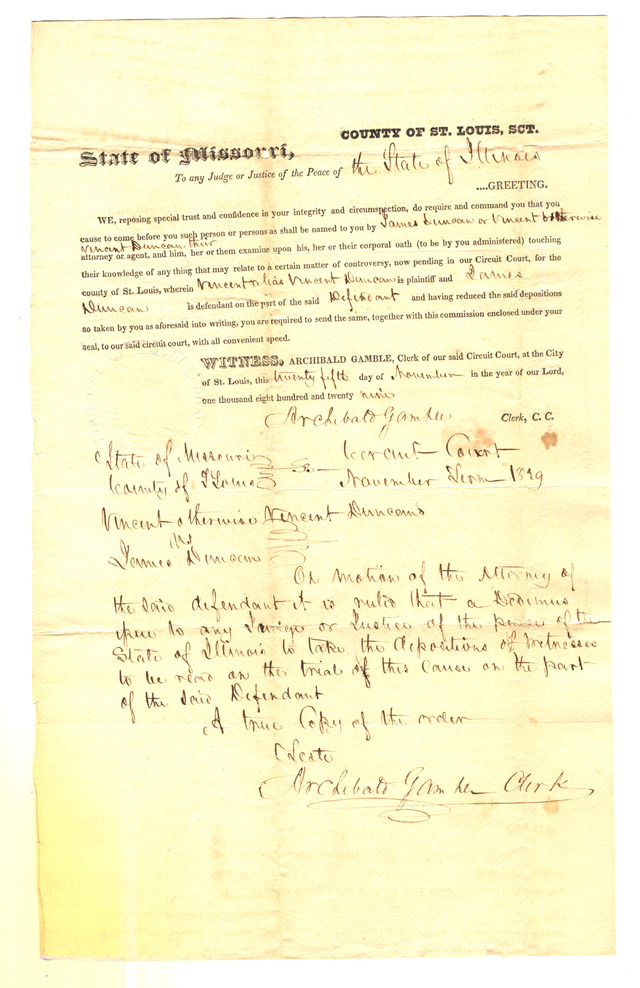 COUNTY OF ST. LOUIS, SCT.
State of Missorri,
To any Judge or Justice of the Peace of the State of Illinois
....GREETING.
WE, reposing special trust and confidence in your integrity and circumspection, do require and command you that you
cause to come before you such person or persons as shall be named to you by James Duncan or Vincent otherwise
Vincent Duncan their
attorney or agent, and him, her or them examine upon his, her or their corporal oath (to be by you administered) touching
their knowledge of any thing that may relate to a certain matter of controversy, now pending in our Circuit Court, for the
county of St. Louis, wherein Vincent alias Vincent Duncan is plaintiff and James
Duncan is defendant on the part of the said Defendant and having reduced the said depositions
so taken by you as aforesaid into writing, you are required to send the same, together with this commission enclosed under your
seal, to our said circuit court, with all convenient speed.
WITNESS, ARCHIBALD GAMBLE, Clerk of our said Circuit Court, at the City
of St. Louis, this twenty fifth day of November in the year of our Lord,
one thousand eight hundred and twenty nine
Archibald Gamble Clerk, C. C.
State of Missouri Circuit Court
County of St Louis November Term 1829
Vincent otherwise Vincent Duncan
vs
James Duncan
On motion of the Attorney of
the said defendant it is ruled that a Dedimus
issue to any Judge or Justice of the peace of the
State of Illinois to take the depositions of Witnesses
to be read on the trial of this cause on the part
of the said Defendant
A true Copy of the order
Teste
Archibald Gamble Clerk